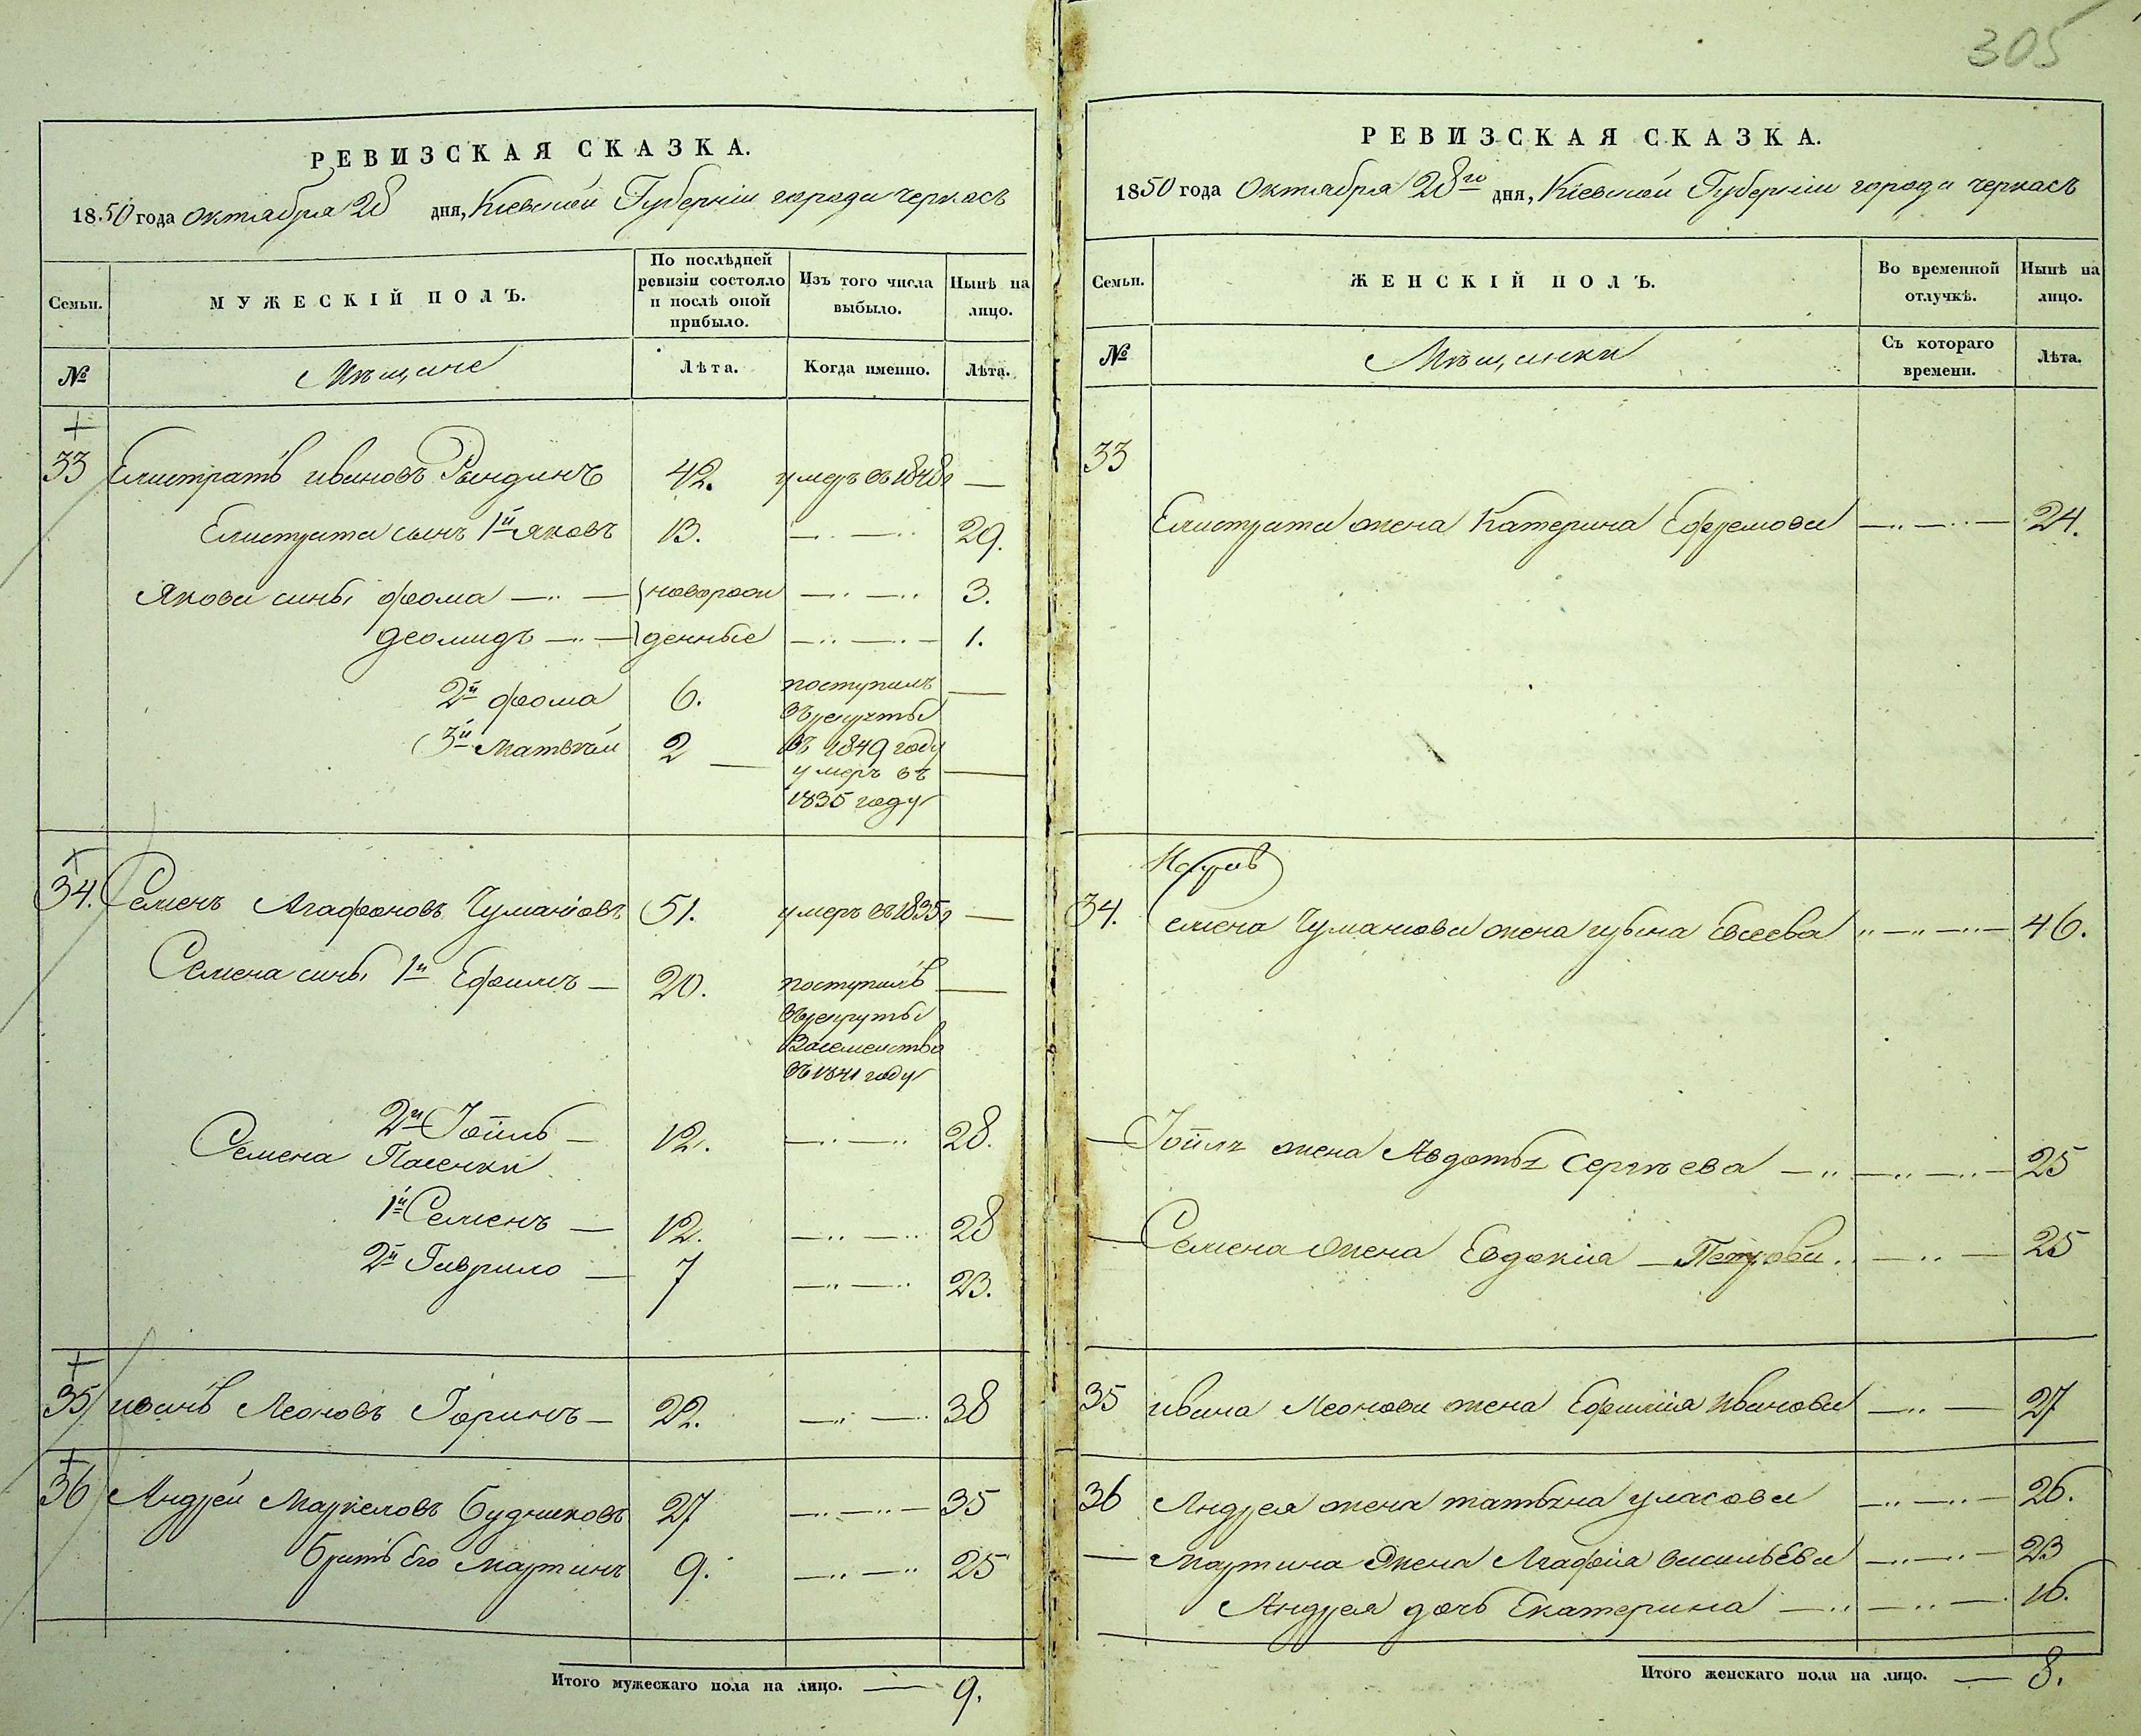 305
РЕВИЗСКАЯ СКАЗКА.
1850 года октября 28 дня, Кіевской Губерніи города черкасъ
Семьи.
МУЖЕСКІЙ ПОЛЪ.
По послѣдней ревизіи состояло и послѣ оной прибыло.
Изъ того числа выбыло.
Нынѣ на лицо.
№
Мѣщане
Лѣта.
Когда именно.
Лѣта.
33 Елистратъ ивановъ Рындинъ 42. умеръ въ 1848г —
Елистрата сынъ 1й яковъ 13. 29.
Якова сыны фома новорож 3.
деомидъ денные 1.
2й фома 6. поступилъ
въ рекруты
3й Матвѣй 2 въ 1849 году
умеръ въ
1835 году
34. Семенъ Агафоновъ Чумаковъ 51. умеръ въ 1835г —
Семена сыны 1й Ефимъ — 20. поступилъ
въ рекруты
въ 1841 году
2й Іоиль — 12. 28.
Семена Пасенки
1й Семенъ — 12. 28
2й Гаврило — 7 23.
35 иванъ Леоновъ Горинъ — 22. 38
36 Андрей Маркеловъ Будниковъ 27 35
братъ Его мартинъ 9. 25
Итого мужескаго пола на лицо. — 9.
РЕВИЗСКАЯ СКАЗКА.
1850 года Октября 28го дня, Кіевской Губерніи города черкасъ
Семьи.
ЖЕНСКІЙ ПОЛЪ.
Во временной отлучкѣ.
Нынѣ на лицо.
№
Мѣщанки
Съ котораго времени.
Лѣта.
33
Елистрата жена Катерина Ефремова 24.
34. Семена Чумакова жена Евсеева 46.
— Іоиля жена Авдотья Сергѣева 25
— Семена жена Евдокіа — Петрова 25
35 ивана Леонова жена Ефимія Иванова 27
36 Андрея жена татьяна уласова 26.
— мартина жена Агафіа васильева 23
Андрея дочь Екатерина 16.
Итого женскаго пола на лицо. — 8.